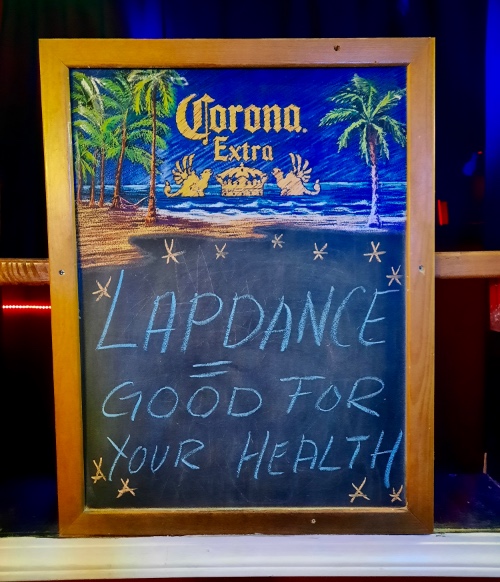 Corona.
Extra
LAPDANCE
=
GOOD FOR
YOUR HEALTH